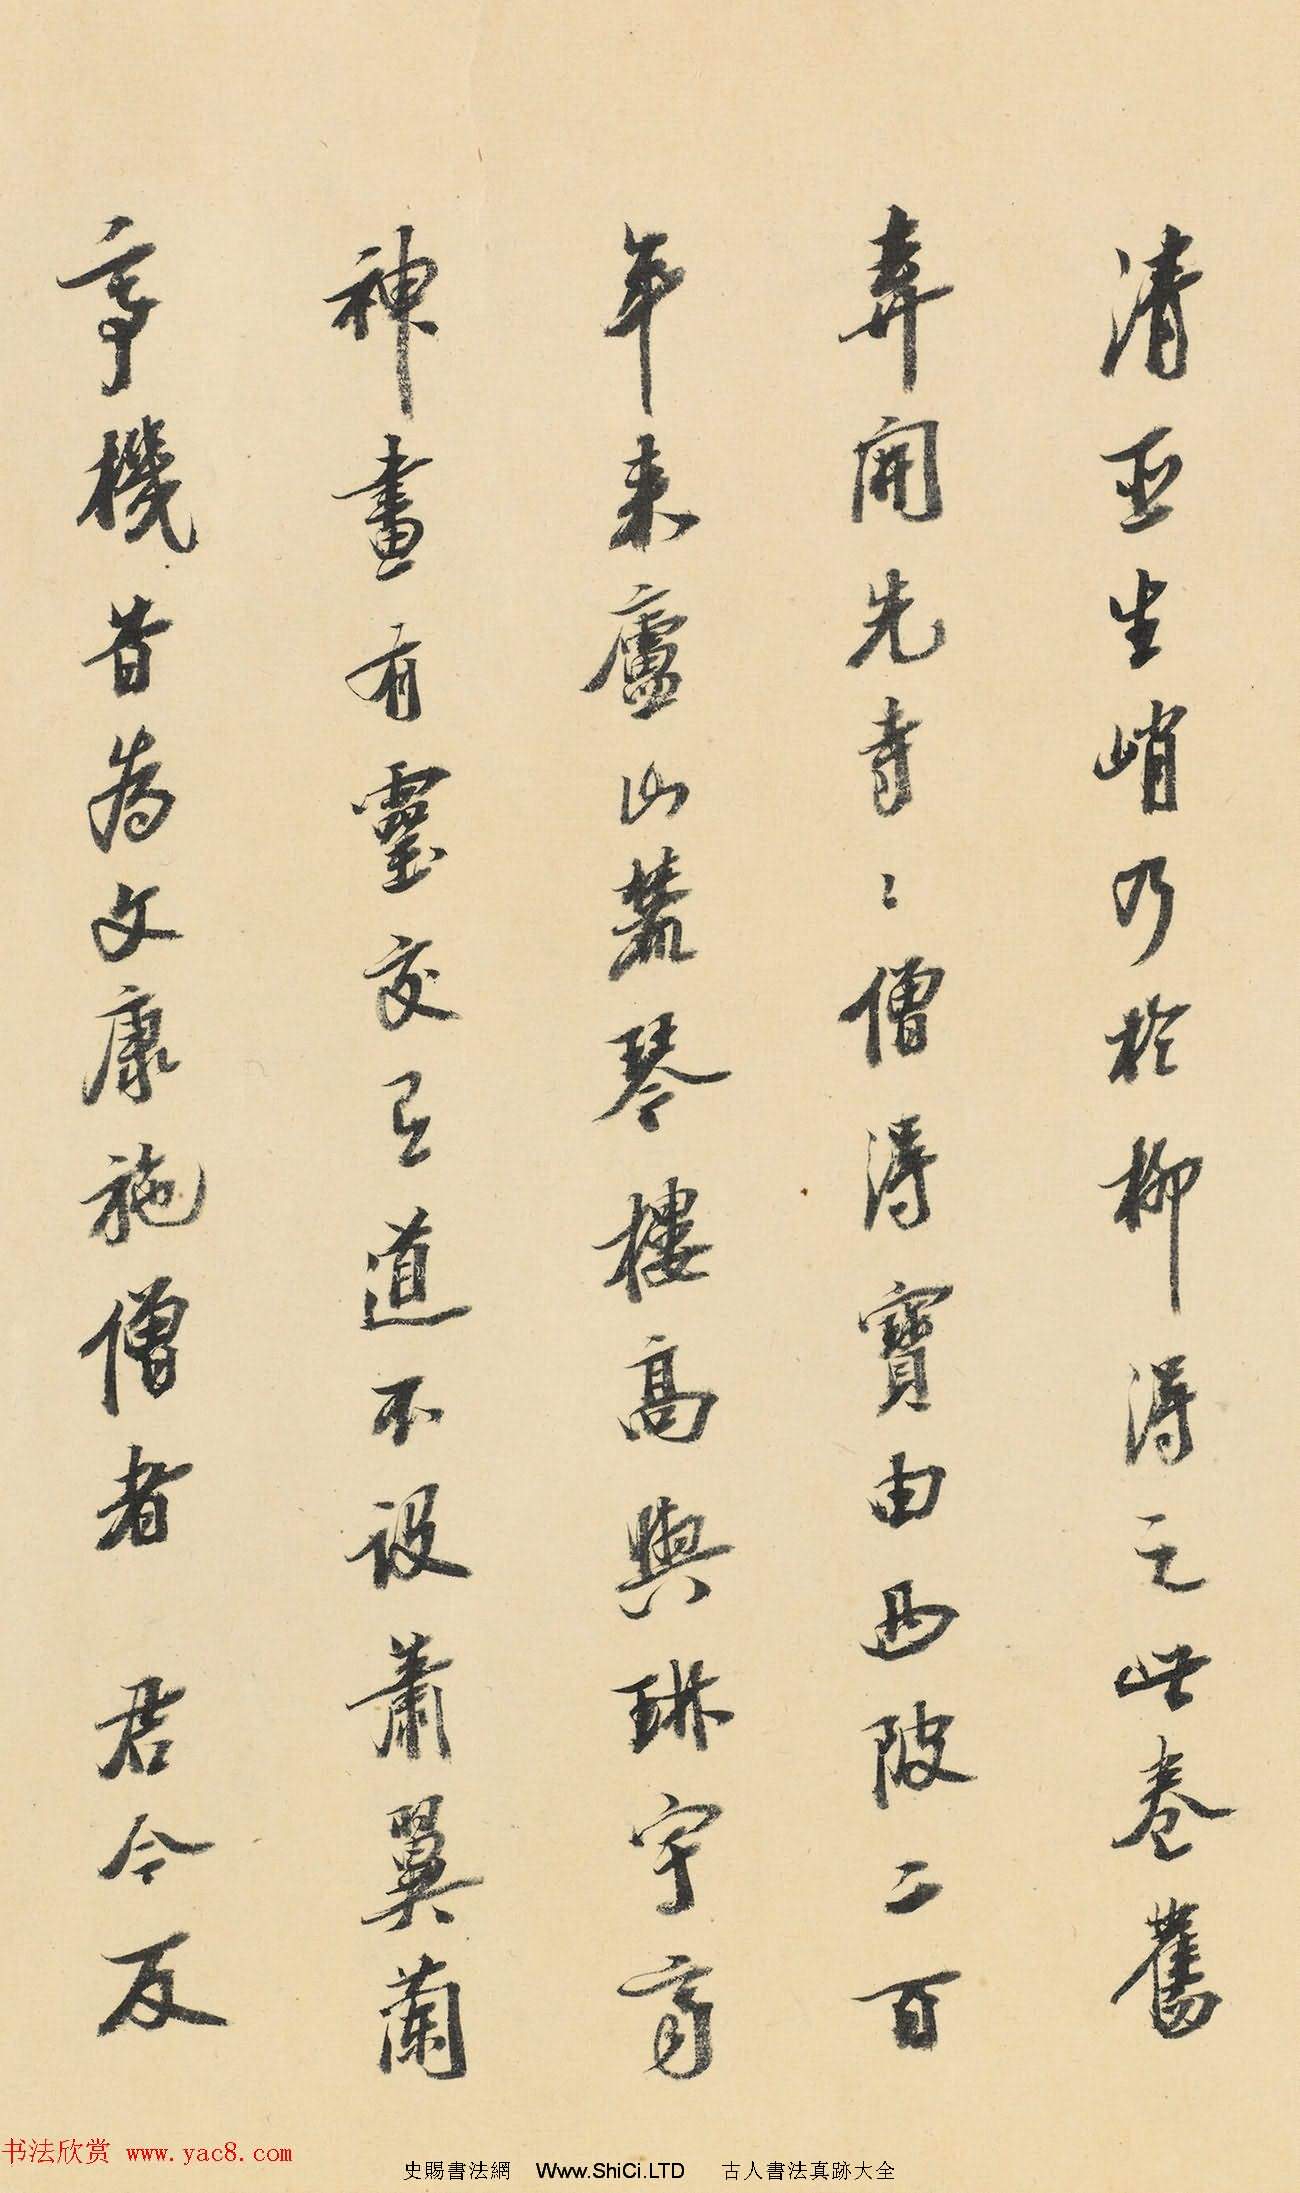 清亜生峭乃於柳得之此卷舊
弆開先寺〻僧得寶由西陂二百
年来廬山叢琴樓高與琳宇齊
神畫有靈交已道不設蕭翼蘭
亭機昔為文康施僧者 君今反
书法欣赏 www.yac8.com
史賜書法網 Www.ShiCi.LTD 古人書法真跡大全